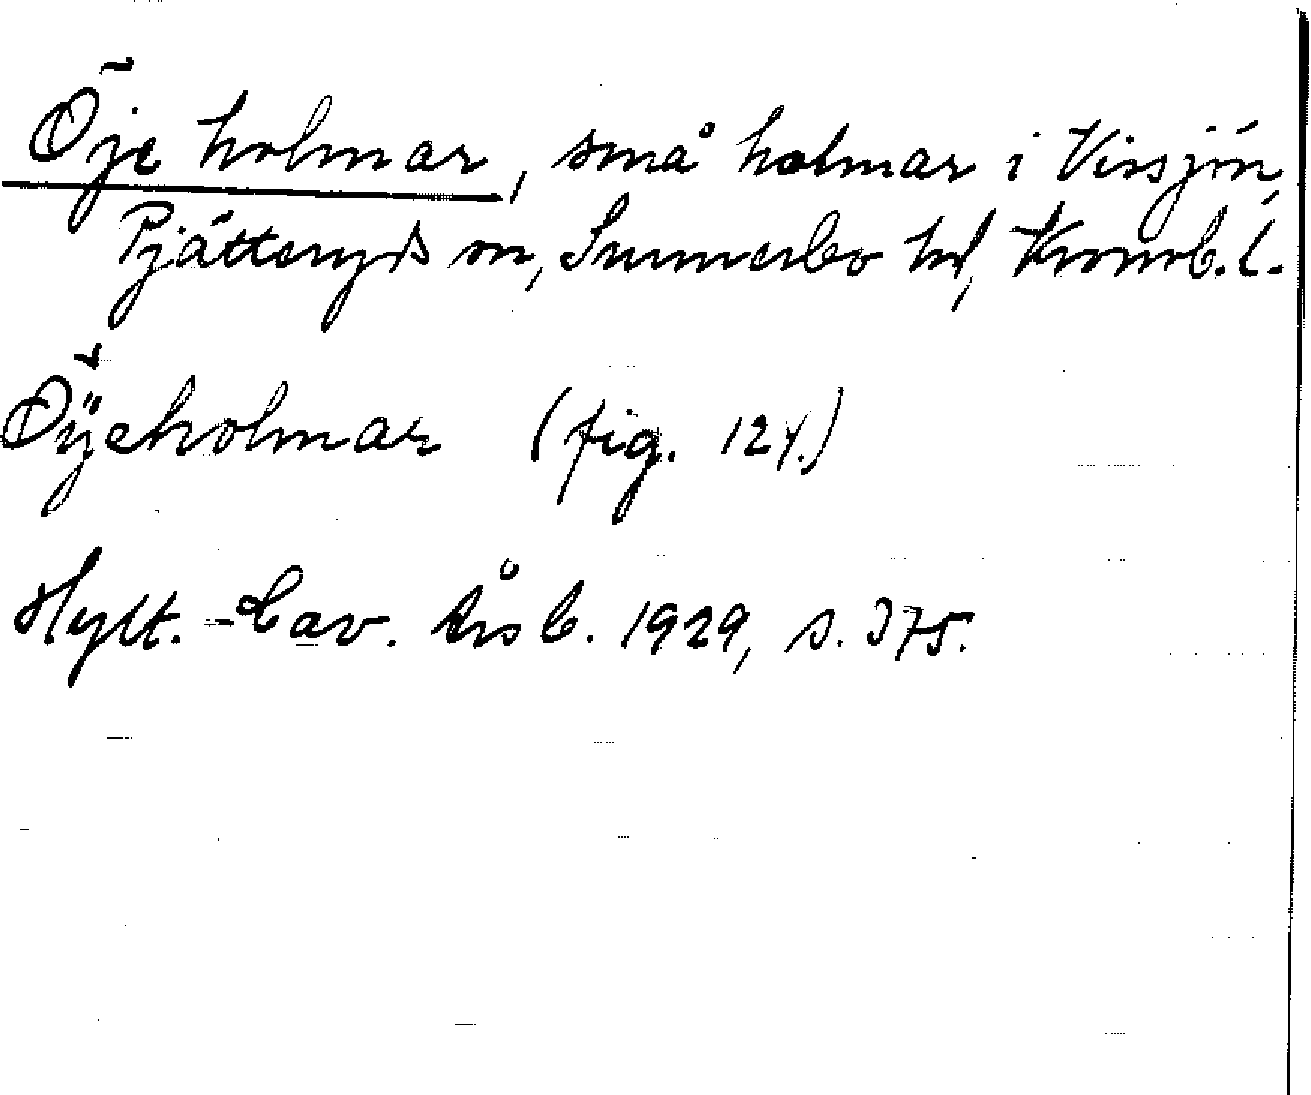 Öje holmar, små holmar i Vissjön,
Pjätteryds sn, Sunnerbo hd, Kronob. l.
Öÿeholmar (fig. 124.)
Hylt.-Cav. årsb. 1929, s. 375.